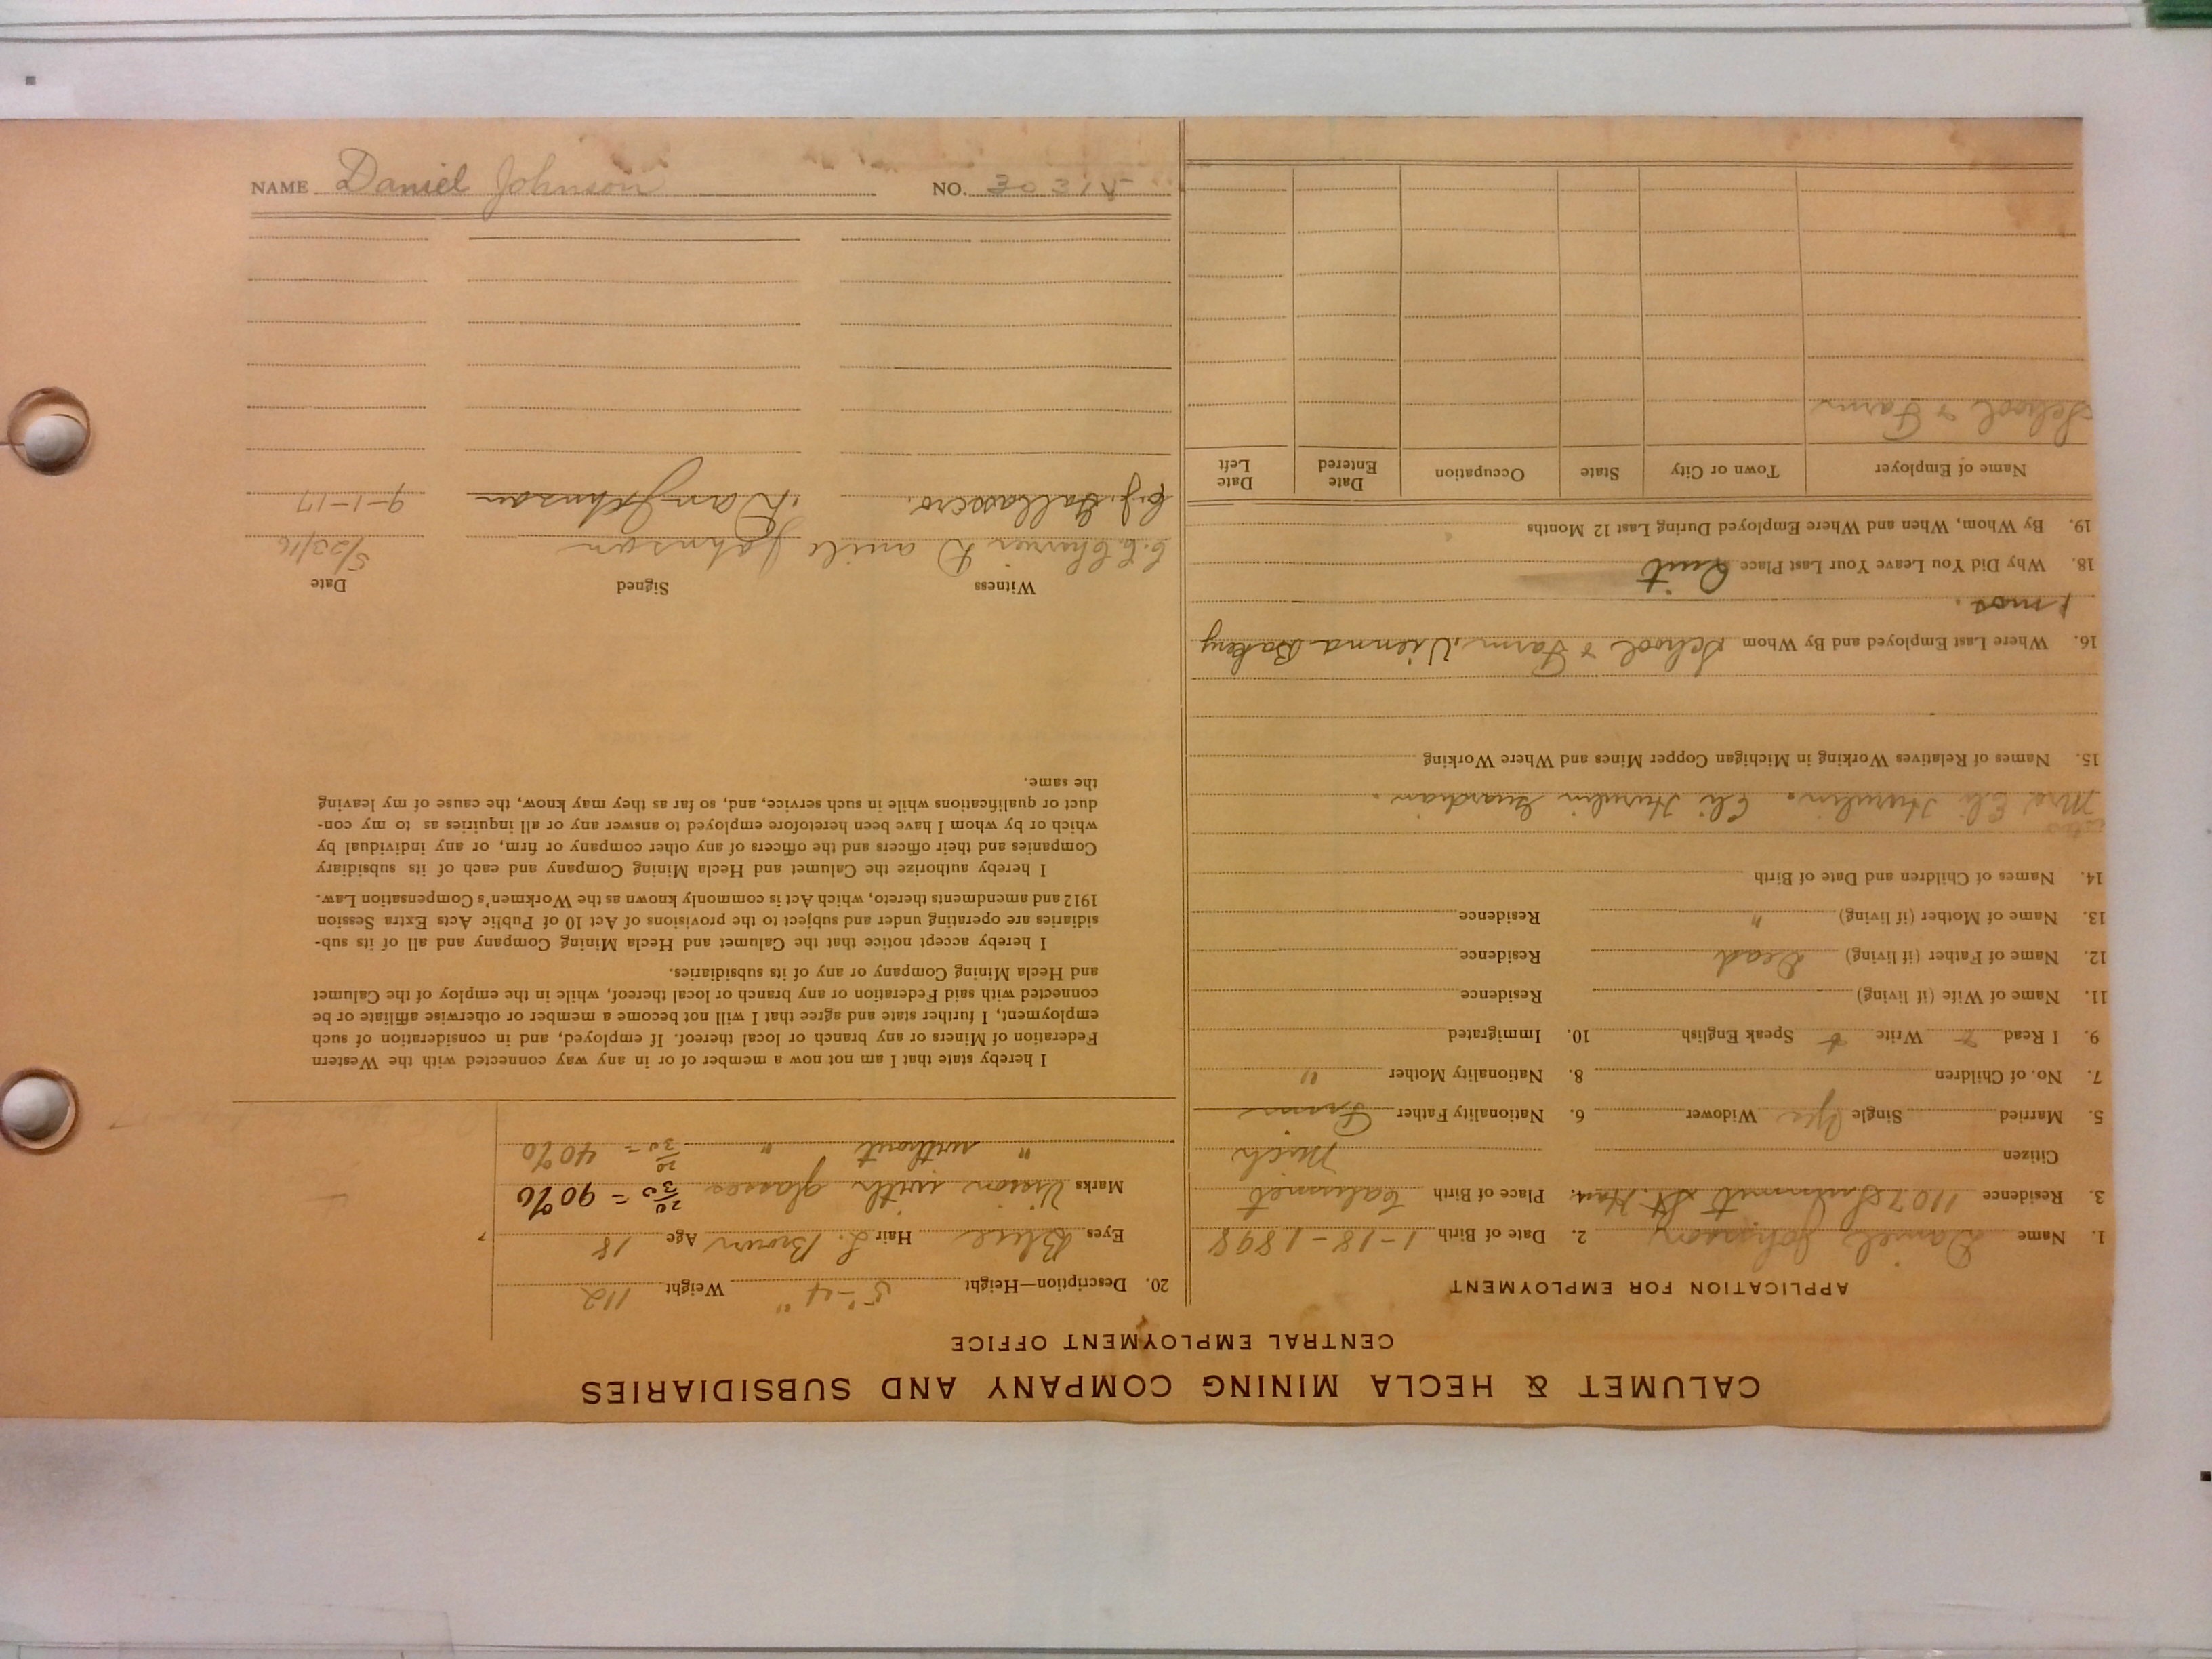 CALUMET & HECLA MINING COMPANY AND SUBSIDIARIES
CENTRAL EMPLOYMENT OFFICE
APPLICATION FOR EMPLOYMENT
1. Name Daniel Johnson 2. Date of Birth 1-18-1898
3. Residence 1107 Summit St. Han. 4. Place of Birth Calumet
Citizen Mich
5. Married Single Yes Widower 6. Nationality Father Finn
7. No. of Children 8. Nationality Mother "
9. I Read Write Speak English 10. Immigrated
11. Name of Wife (if living) Residence
12. Name of Father (if living) Dead Residence
13. Name of Mother (if living) " Residence
14. Names of Children and Date of Birth
Mrs Eli Eli guardian.
15. Names of Relatives Working in Michigan Copper Mines and Where Working
16. Where Last Employed and By Whom School & Farm, Vienna Bakery
1 mos.
18. Why Did You Leave Your Last Place Quit
19. By Whom, When and Where Employed During Last 12 Months
Name of Employer Town or City State Occupation Date Entered Date Left
School & Farm
20. Description—Height 5'-4" Weight 112
Eyes Blue Hair L. Brown Age 18
Marks Vision with glasses 20/30 = 90%
" without " = 40%
I hereby state that I am not now a member of or in any way connected with the Western
Federation of Miners or any branch or local thereof. If employed, and in consideration of such
employment, I further state and agree that I will not become a member or otherwise affiliate or be
connected with said Federation or any branch or local thereof, while in the employ of the Calumet
and Hecla Mining Company or any of its subsidiaries.
I hereby accept notice that the Calumet and Hecla Mining Company and all of its sub-
sidiaries are operating under and subject to the provisions of Act 10 of Public Acts Extra Session
1912 and amendments thereto, which Act is commonly known as the Workmen's Compensation Law.
I hereby authorize the Calumet and Hecla Mining Company and each of its subsidiary
Companies and their officers and the officers of any other company or firm, or any individual by
which or by whom I have been heretofore employed to answer any or all inquiries as to my con-
duct or qualifications while in such service, and, so far as they may know, the cause of my leaving
the same.
Witness Signed Date
Johnson 5/23/16
Dan Johnson 9-1-17
NAME Daniel Johnson NO. 30315